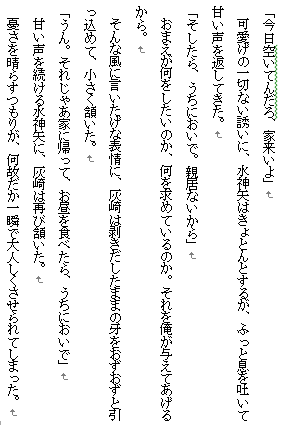 「今日空いてんだろ、家来いよ」
可愛げの一切ない誘いに、水神矢はきょとんとするが、ふっと息を吐いて
甘い声を返してきた。
「そしたら、うちにおいで。親居ないから」
おまえが何をしたいのか、何を求めているのか。それを俺が与えてあげる
から。
そんな風に言いたげな表情に、灰崎は剥きだしたままの牙をおずおずと引
っ込めて、小さく頷いた。
「うん。それじゃあ家に帰って、お昼を食べたら、うちにおいで」
甘い声を続ける水神矢に、灰崎は再び頷いた。
憂さを晴らすつもりが、何故だか一瞬で大人しくさせられてしまった。